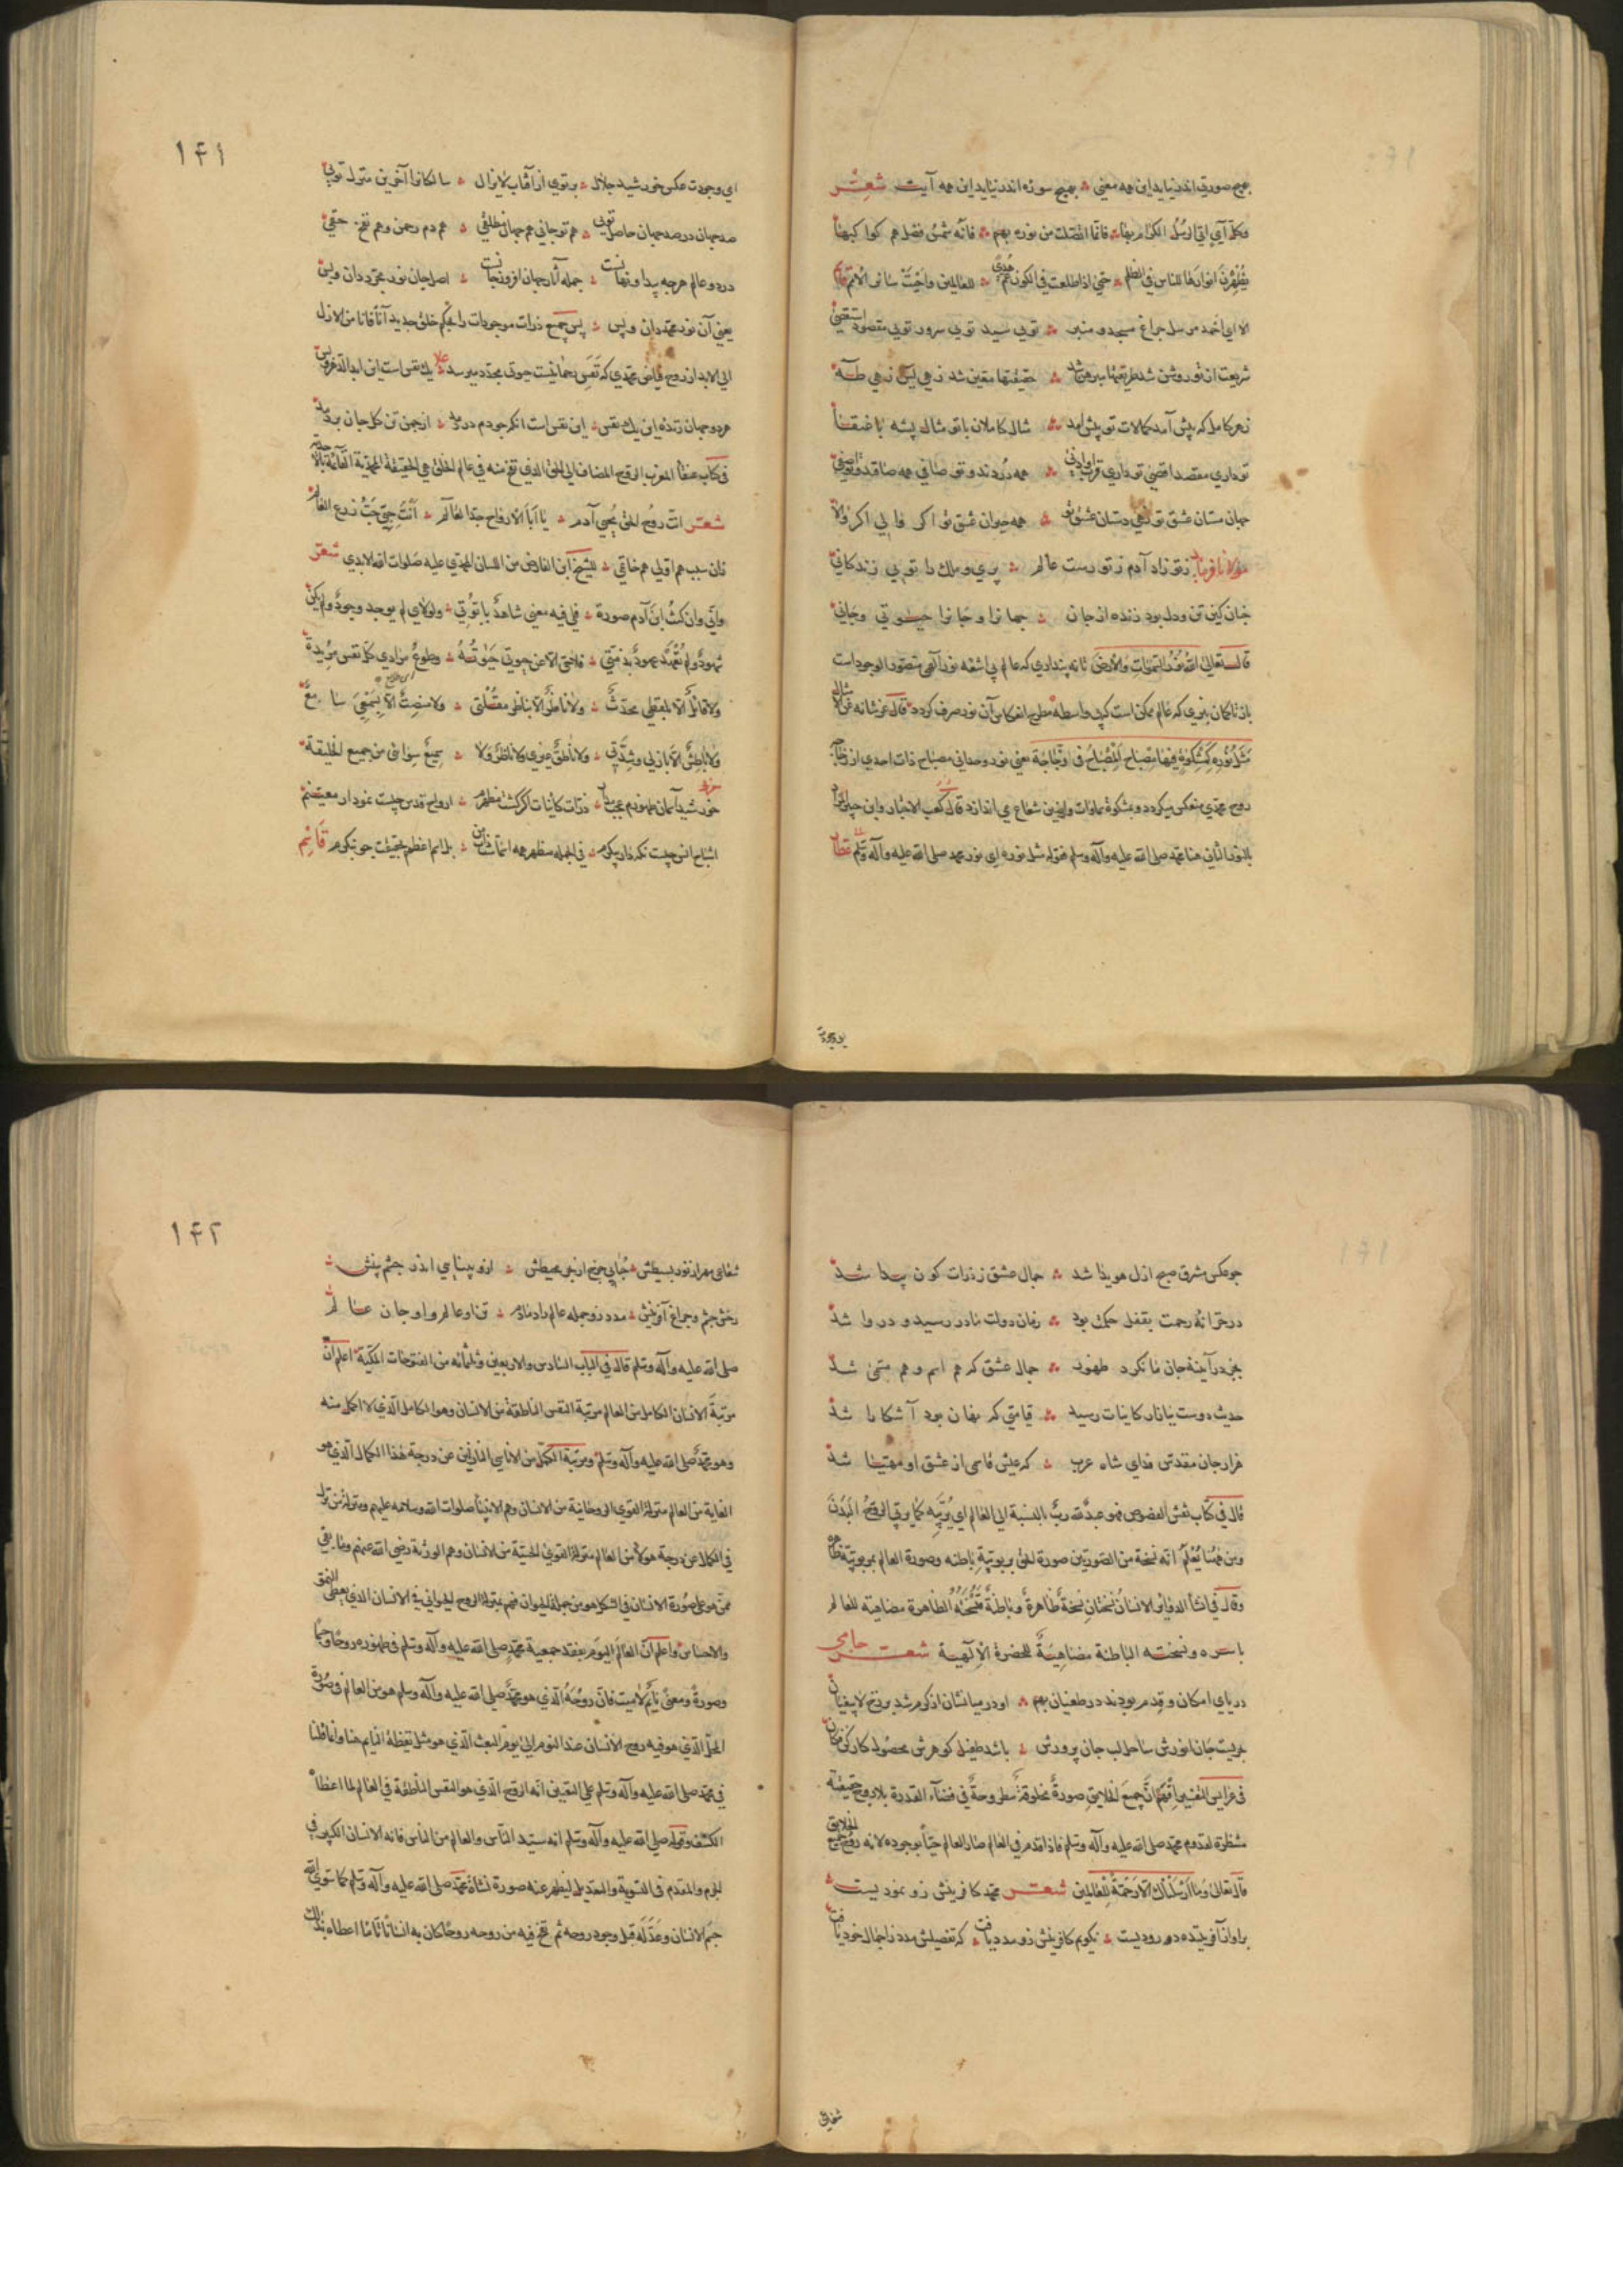 بهیچ صورتی اندر نیاید این همه معنی ؞ بهیچ سوره اندر نیاید این همه آیت شعر
وکل آی اتی الرسل الکرام بها ؞ فانما اتصلت من نوره بهم ؞ فانه شمس فضل هم کواکبها
یظهرن انوارها للناس فی الظلم ؞ حتی اذا طلعت فی الکون عم هدی ؞ للعالمین واحیت سائر الامم
الا ای احمد مرسل چراغ مسجد و منبر ؞ توی سید توی سرور توی مقصود
شریعت از تو روشن شد طریقتها مبرهن شد ؞ حقیقتها معین شد زهی یس زهی طه
زهر کامل که پیش آمد کمالات تو پیش آمد ؞ مثال کاملان با تو مثال پشه با عنقا
تو داری مقصد اقصی تو داری قرب او ادنی ؞ همه دردند و تو صافی همه
جهان مستان عشق تو زهی دستان عشق تو ؞ همه حیوان عشق تو اگر
مولانا فرماید ز تو زاد آدم ز تو رست عالم ؞ پری و ملک را توی زندکانی
چنان کین تن و دل بود زنده از جان ؞ جهانرا و جانرا حیوتی و جانی
قال تعالی الله نور السموات والارض تا نه پنداری که عالم بی اشعه نور آلهی متصور الوجود است
یا ناکمان نبری که عالم ممکن است که بی واسطه مطرح انعکاس آن نور صرف کردد قال عز شانه
مثل نوره کمشکوة فیها مصباح المصباح فی زجاجة یعنی نور وحدانی مصباح ذات احدی از زجاجه
روح محمدی منعکس میکردد و بمشکوة سماوات وارضین شعاع می اندازد قال کعب الاحبار وابن جبیر المراد
بالنور الثانی هنا محمد صلی الله علیه وآله وسلم فقوله مثل نوره ای نور محمد صلی الله علیه وآله وسلم عطار
ای وجودت
۱۴۱
ای وجودت عکس خورشید جلال ؞ پرتوی از آفتاب لایزال ؞ سالکانرا آخرین منزل توی
صد جهان در صد جهان حاصل توی ؞ هم تو جانی هم جهان مطلقی ؞ هم دم رحمن و هم نفخ حقی
در دو عالم هرچه پیدا و نهانست ؞ جمله آثار جهان افروز جانست ؞ اصل جان نور مجرد دان و بس
یعنی آن نور محمد دان و بس ؞ پس جمیع ذرات موجودات را بحکم خلق جدید آنا فآنا من الازل
الی الابد از روح فیاض محمدی که نفس رحمانیست حیوتی مجدد میرسد ؞ یک نفس است این ابدا لا غیر و بس
هر دو جهان زنده این یک نفس ؞ این نفس است انکه چو دم در دمد ؞ از چمن تن کل جان بردمد
فی کتاب عنقاء المغرب الروح المضاف الی الحق الذی نفخ منه فی عالم الخلق هی الحقیقة المحمدیة القائمة بالاحدیة
شعر انت روح الحق یحیی آدم ؞ یا ابا الارواح جدا لعالم ؞ انت حی حب زرع
زان سبب هم اولی هم خاتمی ؞ للشیخ ابن الفارض من اللسان المحمدی علیه صلوات الله الابدی شعر
وانی وان کنت ابن آدم صورة ؞ فلی فیه معنی شاهد بابوتی ؞ ولولای لم یوجد وجود ولم یکن
شهود ولم تعهد عهود بذمتی ؞ فلا حی الا عن حیوتی حیوته ؞ وطوع مرادی کل نفس مریدة
ولا قائل الا بلفظی محدث ؞ ولا ناظر الا بناظر مقلتی ؞ ولا منصت الا بسمعی سامع
ولا باطش الا بازلی وشدتی ؞ ولا ناطق غیری ولا ناظر ولا ؞ سمیع سوائی من جمیع الخلیقة
خورشید آسمان ظهورم عجب مدار ؞ ذرات کاینات اگر کشت مظهرم ؞ ارواح قدس چیست نمودار معنیم
اشباح انس چیست نکه دار پیکرم ؞ فی الجمله مظهر همه اسماست ذات من ؞ بل اسم اعظم بحقیقت چو بنکرم قاسم
چو عکس مشرق صبح ازل هویدا شد ؞ جمال عشق ز ذرات کون پیدا شد
در خزانهٔ رحمت بقفل حکمت بود ؞ زمان دولت ما در رسید و در وا شد
بجز در آینهٔ جان ما نکرد ظهور ؞ جمال عشق که هم اسم و هم مسمی شد
حدیث دوست بانار کاینات رسید ؞ قیامتی که نهان بود آشکارا شد
هزار جان مقدس فدای شاه عرب ؞ که عیش قاسمی از عشق او مهنا شد
قال فی کتاب نقش الفصوص فهو عبد لله رب بالنسبة الی العالم ای یربیه کما یربی الروح البدن
ومن هنا یعلم انه نسخة من الصورتین صورة الحق بربوبیته باطنه وصورة العالم بمربوبیته ظاهره
وقال فی انشاء الدوائر الانسان نسختان نسخة ظاهرة ونسخة باطنة فنسخته الظاهرة مضاهیة للعالم
باسره ونسخته الباطنة مضاهیة للحضرة الالهیة شعر جامی
دریای امکان و قدم بودند در طغیان بهم ؞ او در میانشان از کرم شد برزخ لا یبغیان
بحریست جان انورش ساحل لب جان پرورش ؞ باشد طفیل کوهرش محصول کار کن فکان
فی عرایس التفسیر افهم ان جمیع الخلایق صورة مخلوقة مطروحة فی فضاء القدرة بلا روح حقیقة
منتظرة لقدوم محمد صلی الله علیه وآله وسلم فاذا قدم فی العالم صار العالم حیا بوجوده لانه روح جمیع الخلایق
قال تعالی وما ارسلناک الا رحمة للعالمین شعر محمد کافرینش زو نمودیست
بر او از آفریننده درودیست ؞ نکویم کافرینش زو مدد یافت ؞ که تفصیلش مدد ز اجمال خود یافت
شعاعی
۱۴۲
شعاعی مهر از نور بسیطش ؞ حبابی چرخ از بحر محیطش ؞ ازو بینایی اندر چشم بینش ؞
رخش چشم و چراغ آفرینش ؞ مدد زو جمله عالم را دمادم ؞ تن او عالم و او جان عالم
صلی الله علیه وآله وسلم قال فی الباب السادس والاربعین وثلثمائه من الفتوحات المکیة اعلم ان
مرتبة الانسان الکامل من العالم مرتبة النفس الناطقة من الانسان وهو الکامل الذی لا اکمل منه
وهو محمد صلی الله علیه وآله وسلم ومرتبة الکمل من الاناسی النازلین عن درجة هذا الکمال الذی هو
الغایة من العالم منزلة القوی الروحانیة من الانسان وهم الانبیاء صلوات الله وسلامه علیهم ومنزلة من نزل
فی الکمال عن درجة هؤلاء من العالم منزلة القوی الحسیة من الانسان وهم الورثة رضی الله عنهم وما بقی
ممن هو علی صورة الانسان فی الشکل هو من جملة الحیوان فهم بمنزلة الروح الحیوانی فی الانسان الذی یعطی النمو
والاحساس واعلم ان العالم الیوم بفقد جمعیة محمد صلی الله علیه وآله وسلم فی ظهوره روحا وجسما
وصورة ومعنی نائم لا میت فان روحه الذی هو محمد صلی الله علیه وآله وسلم هو من العالم فی صورة
المحل الذی هو فیه روح الانسان عند النوم الی یوم البعث الذی هو مثل یقظة النایم هنا وانما قلنا
فی محمد صلی الله علیه وآله وسلم علی التعیین انه الروح الذی هو النفس الناطقة فی العالم لما اعطاه
الکشف وقوله صلی الله علیه وآله وسلم انه سید الناس والعالم من الناس فانه الانسان الکبیر فی
الجرم والمقدم فی التسویة والتعدیل لیظهر عنه صورة نشأة محمد صلی الله علیه وآله وسلم کما سوی الله
جسم الانسان وعدله قبل وجود روحه ثم نفخ فیه من روحه روحا کان به انسانا تاما اعطاه بذلک